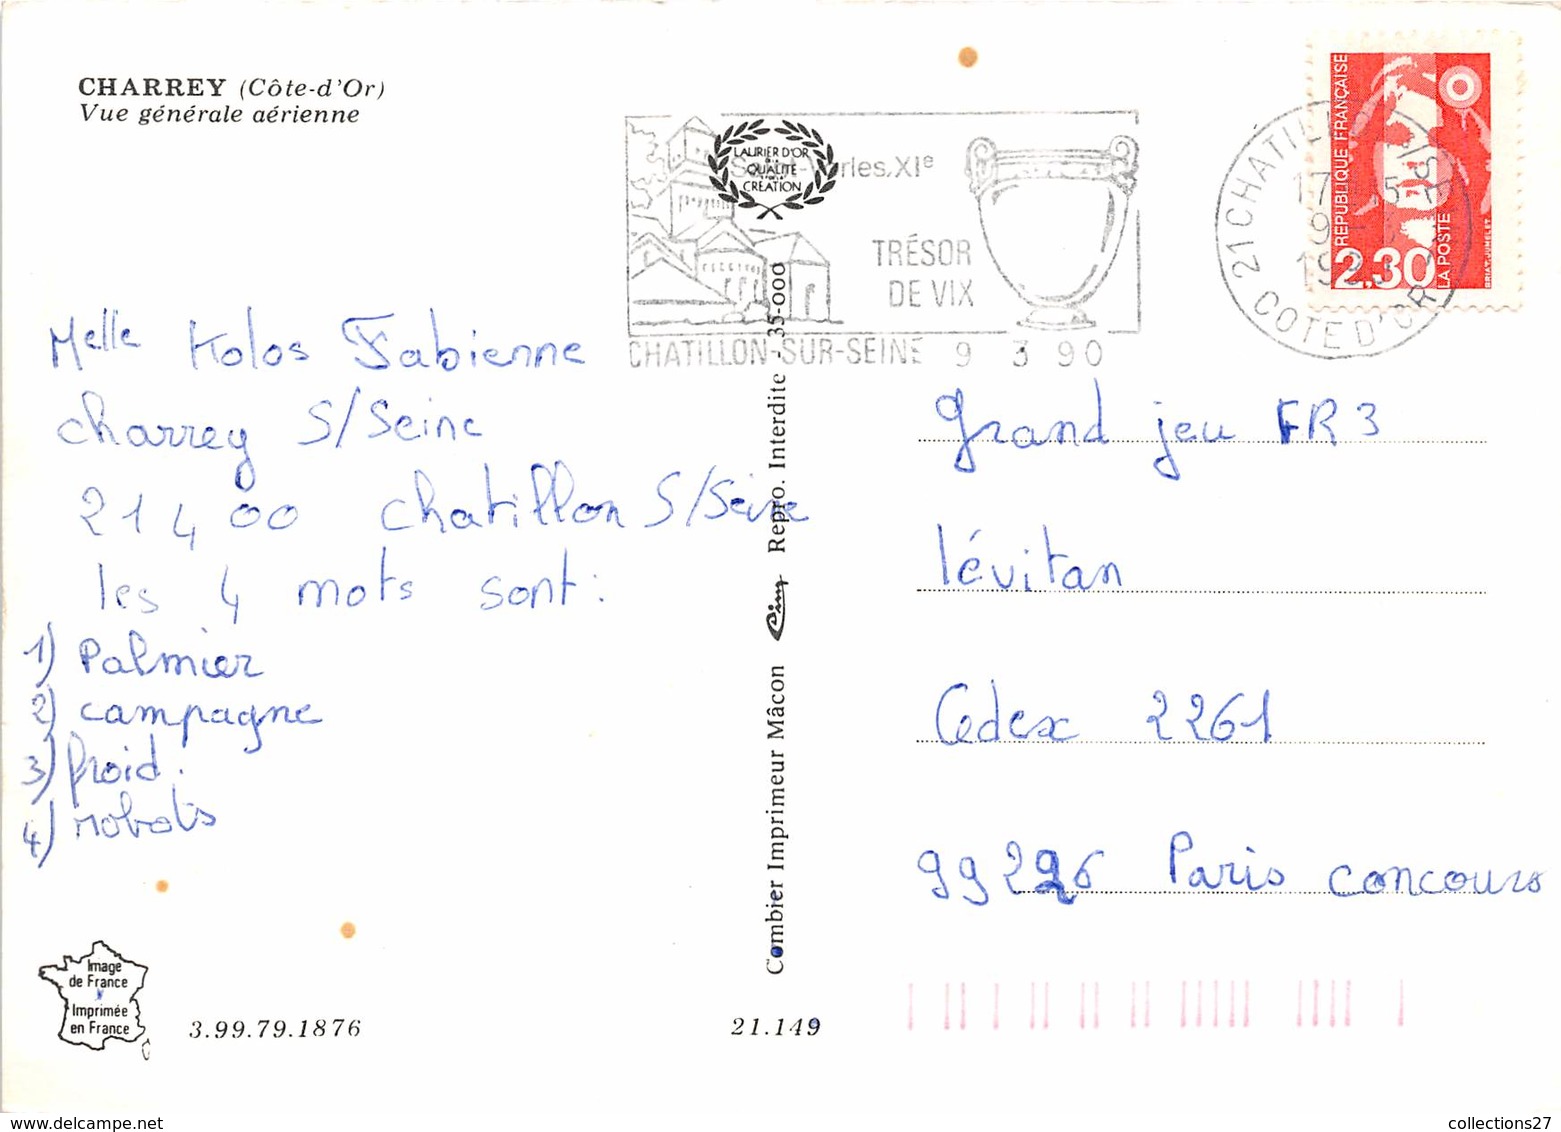 CHARREY (Côte-d'Or)
Vue générale aérienne
LAURIER D'OR
QUALITÉ
CRÉATION
XIe
TRÉSOR
DE VIX
CHATILLON-SUR-SEINE 9 3 90
21 CHATILL
COTE D'OR
17
9
REPUBLIQUE FRANÇAISE
2,30
LA POSTE
BRIAT-JUMELET
Melle Kolos Fabienne
charrey S/Seine
21400 chatillon S/Seine
les 4 mots sont:
1) Palmier
2) campagne
3) froid.
4) robots
Combier Imprimeur Mâcon Cim Repro. Interdite - 35-000
Grand jeu FR3
lévitan
Cedex 2261
99226 Paris concours
Image
de France
Imprimée
en France
3.99.79.1876
21.149
collections27